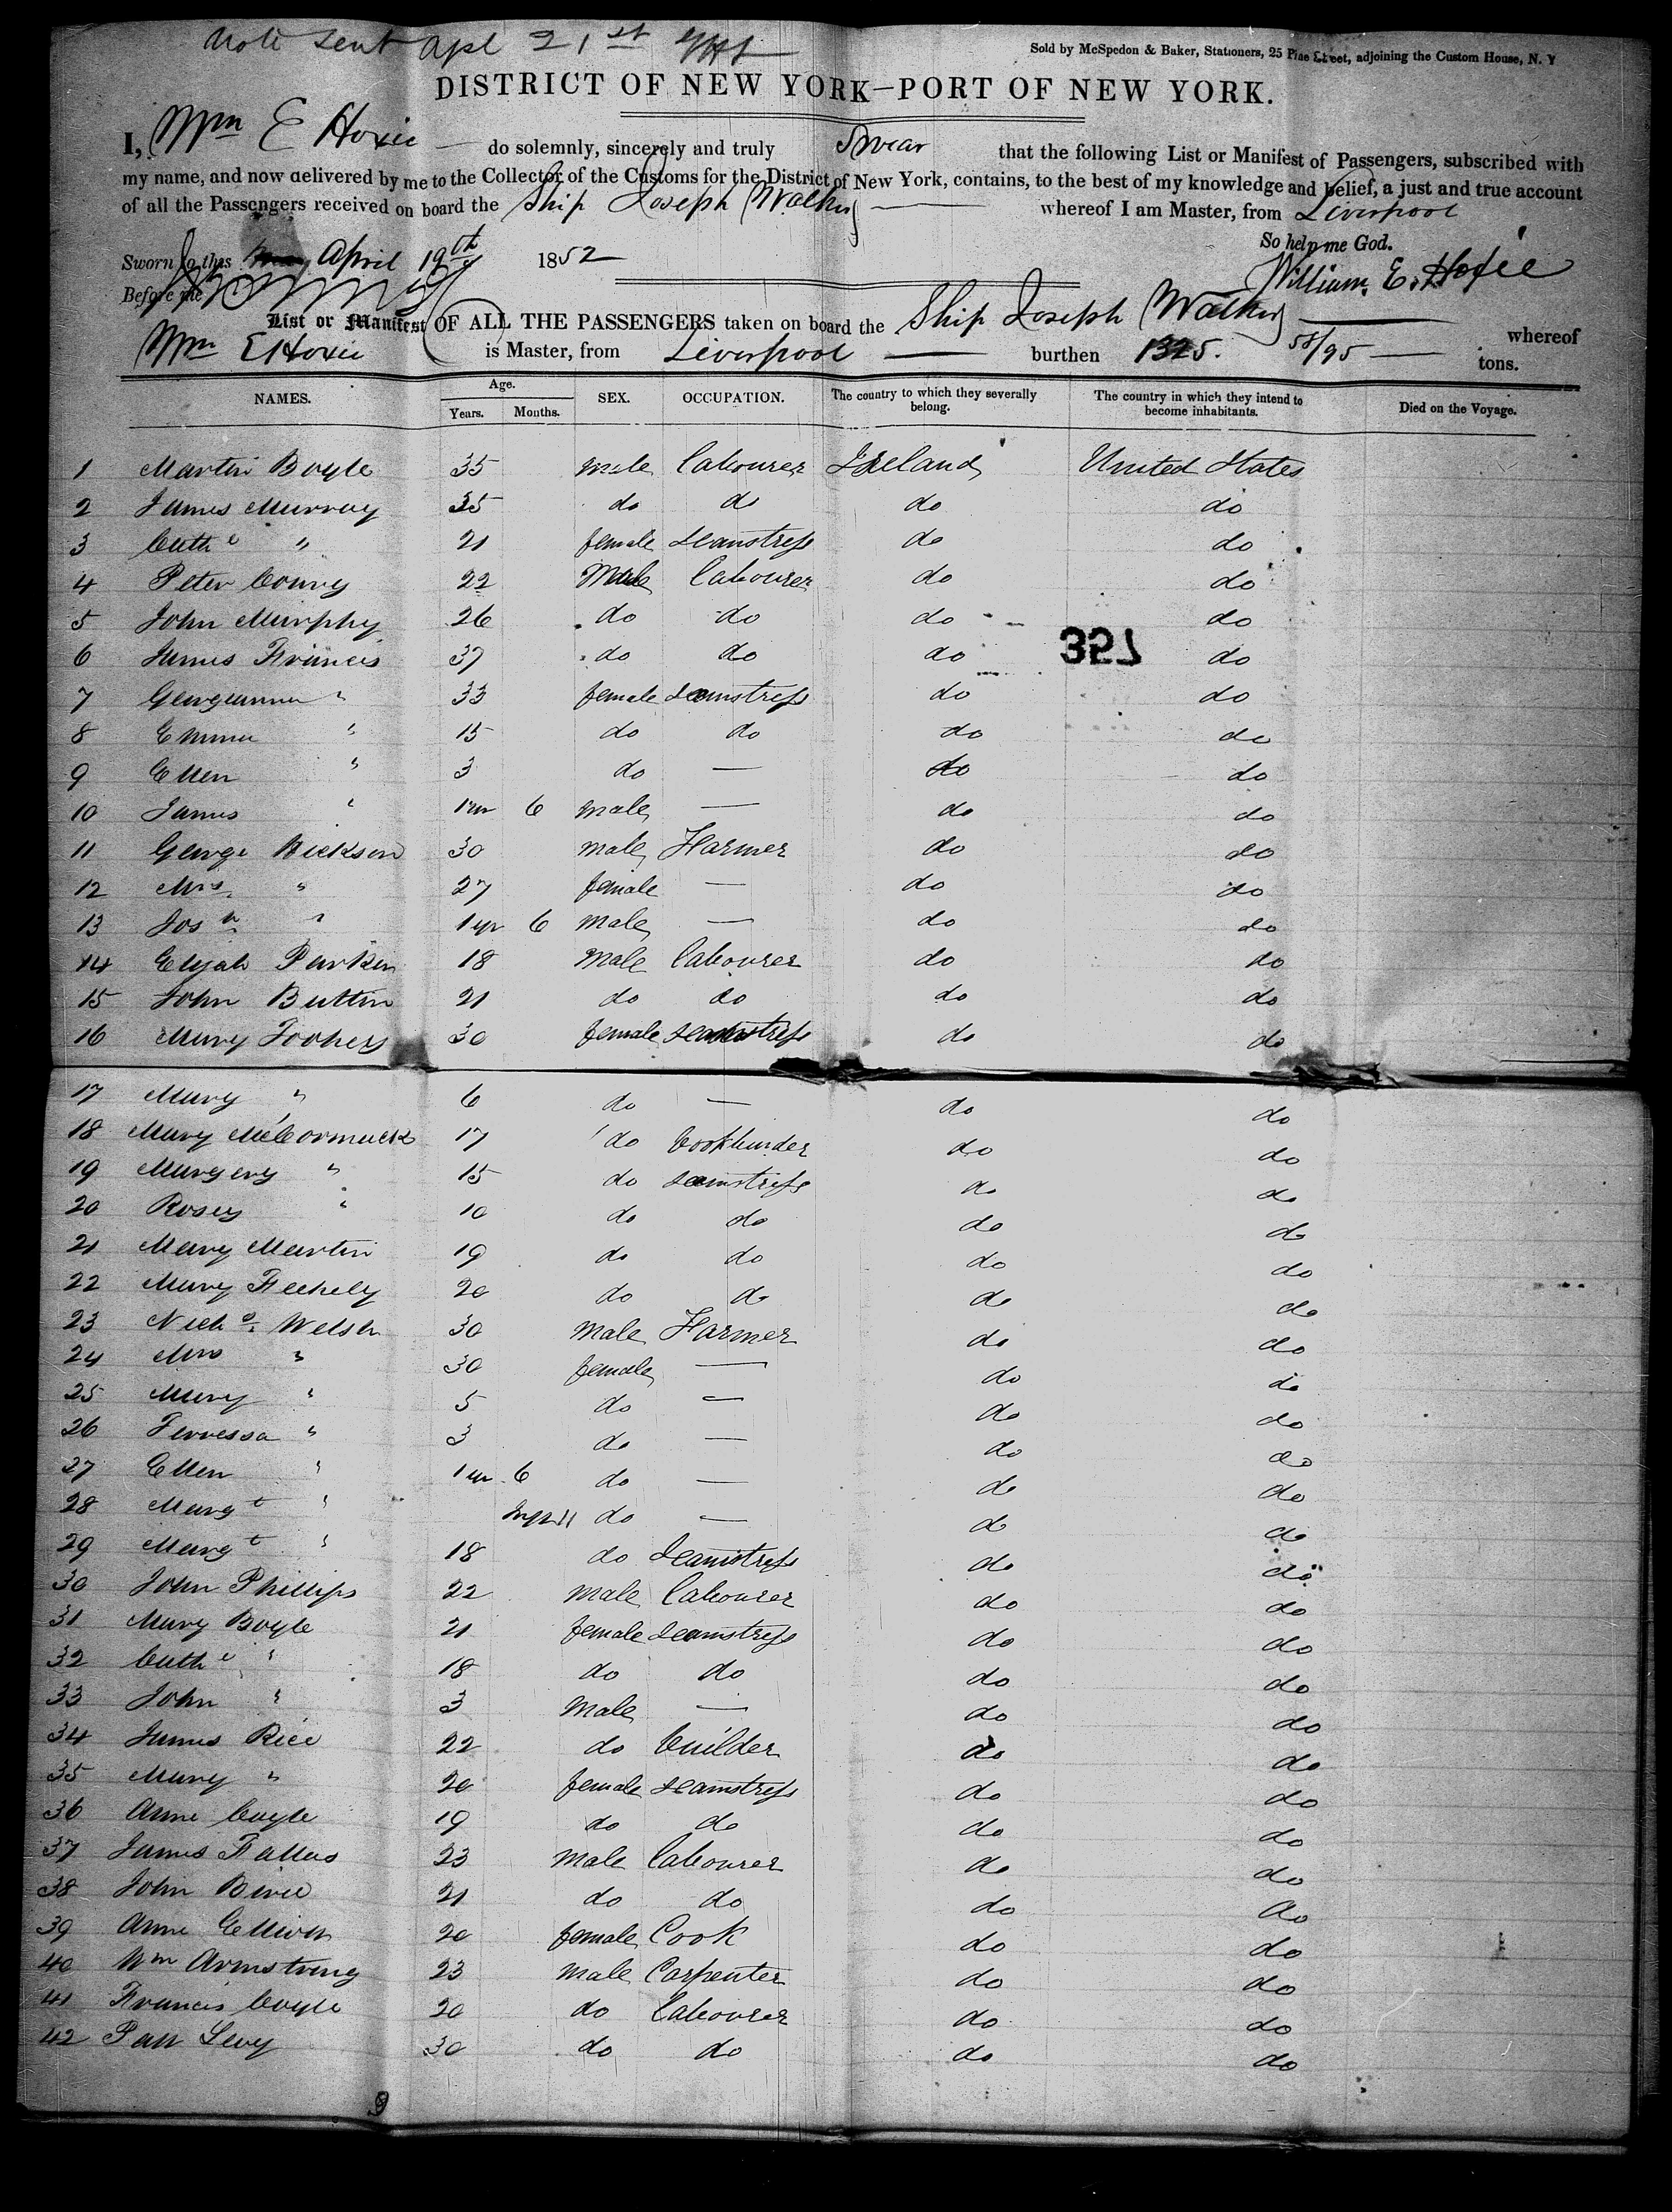 Note Sent Apl 21st
Sold by McSpedon & Baker, Stationers, 25 Pine Street, adjoining the Custom House, N. Y
DISTRICT OF NEW YORK—PORT OF NEW YORK.
I, Wm E Hoxie do solemnly, sincerely and truly Swear that the following List or Manifest of Passengers, subscribed with
my name, and now delivered by me to the Collector of the Customs for the District of New York, contains, to the best of my knowledge and belief, a just and true account
of all the Passengers received on board the Ship Joseph Walker whereof I am Master, from Liverpool
So help me God.
Sworn to this April 19th 1852
William. E. Hoxie
Before me
List or Manifest OF ALL THE PASSENGERS taken on board the Ship Joseph Walker whereof
Wm E Hoxie is Master, from Liverpool burthen 1325. 58/95 tons.
NAMES. Age. Years. Months. SEX. OCCUPATION. The country to which they severally belong. The country in which they intend to become inhabitants. Died on the Voyage.
1 Martin Boyle 35 male labourer Ireland United States
2 James Murray 35 do do do do
3 Cathe " 21 female seamstress do do
4 Peter 22 Male labourer do do
5 John Murphy 26 do do do do
357
6 James Francis 37 do do do do
7 Georgeanna " 33 female seamstress do do
8 Emma " 15 do do do do
9 Ellen " 3 do — do do
10 James " 1yr 6 male — do do
11 George Dickson 30 male Farmer do do
12 Mrs " 27 female — do do
13 Josh " 1yr 6 male — do do
14 Elijah Parkin 18 male labourer do do
15 John Button 21 do do do do
16 Mary 30 female seamstress do do
17 Mary " 6 do — do do
18 Mary McCormack 17 do bookbinder do do
19 Margery " 15 do seamstress do do
20 Rosey " 10 do do do do
21 Mary Martin 19 do do do do
22 Mary Feehely 20 do do do do
23 Nichs Welsh 30 male Farmer do do
24 Mrs " 30 female — do do
25 Mary " 5 do — do do
26 Terressa " 3 do — do do
27 Ellen " 1yr 6 do — do do
28 Margt " do — do do
29 Margt " 18 do seamstress do do
30 John Phillips 22 male labourer do do
31 Mary Boyle 21 female seamstress do do
32 Cathe " 18 do do do do
33 John " 3 male — do do
34 James Rice 22 do builder do do
35 Mary " 20 female seamstress do do
36 Anne Coyle 19 do do do do
37 James Fallas 23 male labourer do do
38 John 21 do do do do
39 Anne Elliott 20 female Cook do do
40 Wm Armstrong 23 male Carpenter do do
41 Francis Coyle 20 do labourer do do
42 Patt Levy 30 do do do do